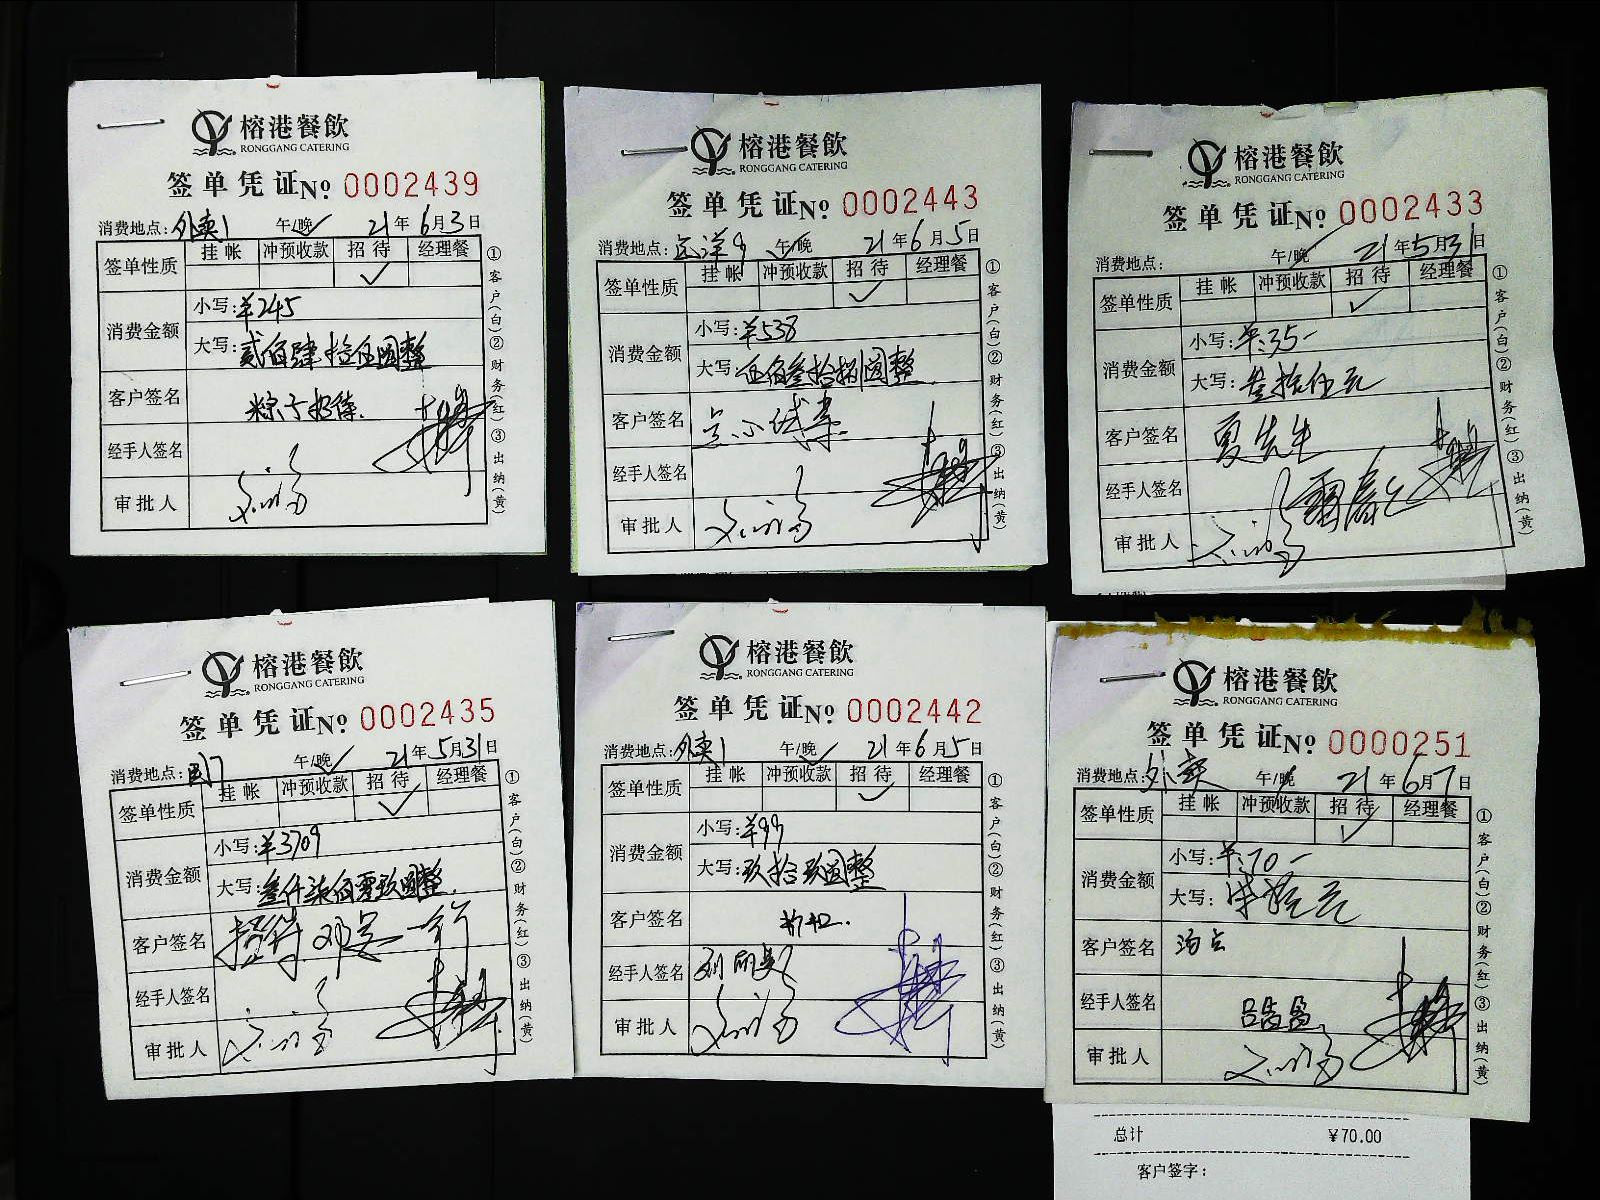 榕港餐飲
RONGGANG CATERING
签单凭证 No 0002439
消费地点: 外卖1 午/晚 21年6月3日
签单性质 挂帐 冲预收款 招待 经理餐
✓
消费金额 小写: ¥245
大写: 贰佰肆拾伍圆整
客户签名 粽子招待.
经手人签名
审批人
①客户(白)②财务(红)③出纳(黄)
榕港餐飲
RONGGANG CATERING
签单凭证 No 0002443
消费地点: 远洋9 午/晚 21年6月5日
签单性质 挂帐 冲预收款 招待 经理餐
✓
消费金额 小写: ¥538
大写: 伍佰叁拾捌圆整
客户签名
经手人签名
审批人
①客户(白)②财务(红)③出纳(黄)
榕港餐飲
RONGGANG CATERING
签单凭证 No 0002433
消费地点: 午/晚 21年5月31日
签单性质 挂帐 冲预收款 招待 经理餐
✓
消费金额 小写: ¥:35-
大写: 叁拾伍元
客户签名 夏先生
经手人签名
审批人
①客户(白)②财务(红)③出纳(黄)
榕港餐飲
RONGGANG CATERING
签单凭证 No 0002435
消费地点: 午/晚 21年5月31日
签单性质 挂帐 冲预收款 招待 经理餐
✓
消费金额 小写: ¥3709
大写: 叁仟柒佰零玖圆整.
客户签名 招待邓总一行
经手人签名
审批人
①客户(白)②财务(红)③出纳(黄)
榕港餐飲
RONGGANG CATERING
签单凭证 No 0002442
消费地点: 外卖1 午/晚 21年6月5日
签单性质 挂帐 冲预收款 招待 经理餐
✓
消费金额 小写: ¥99
大写: 玖拾玖圆整
客户签名
经手人签名 刘丽
审批人
①客户(白)②财务(红)③出纳(黄)
榕港餐飲
RONGGANG CATERING
签单凭证 No 0000251
消费地点: 外卖 午/晚 21年6月7日
签单性质 挂帐 冲预收款 招待 经理餐
✓
消费金额 小写: ¥:70-
大写: 柒拾元
客户签名 汤总
经手人签名 吕
审批人
①客户(白)②财务(红)③出纳(黄)
总计 ¥70.00
客户签字: